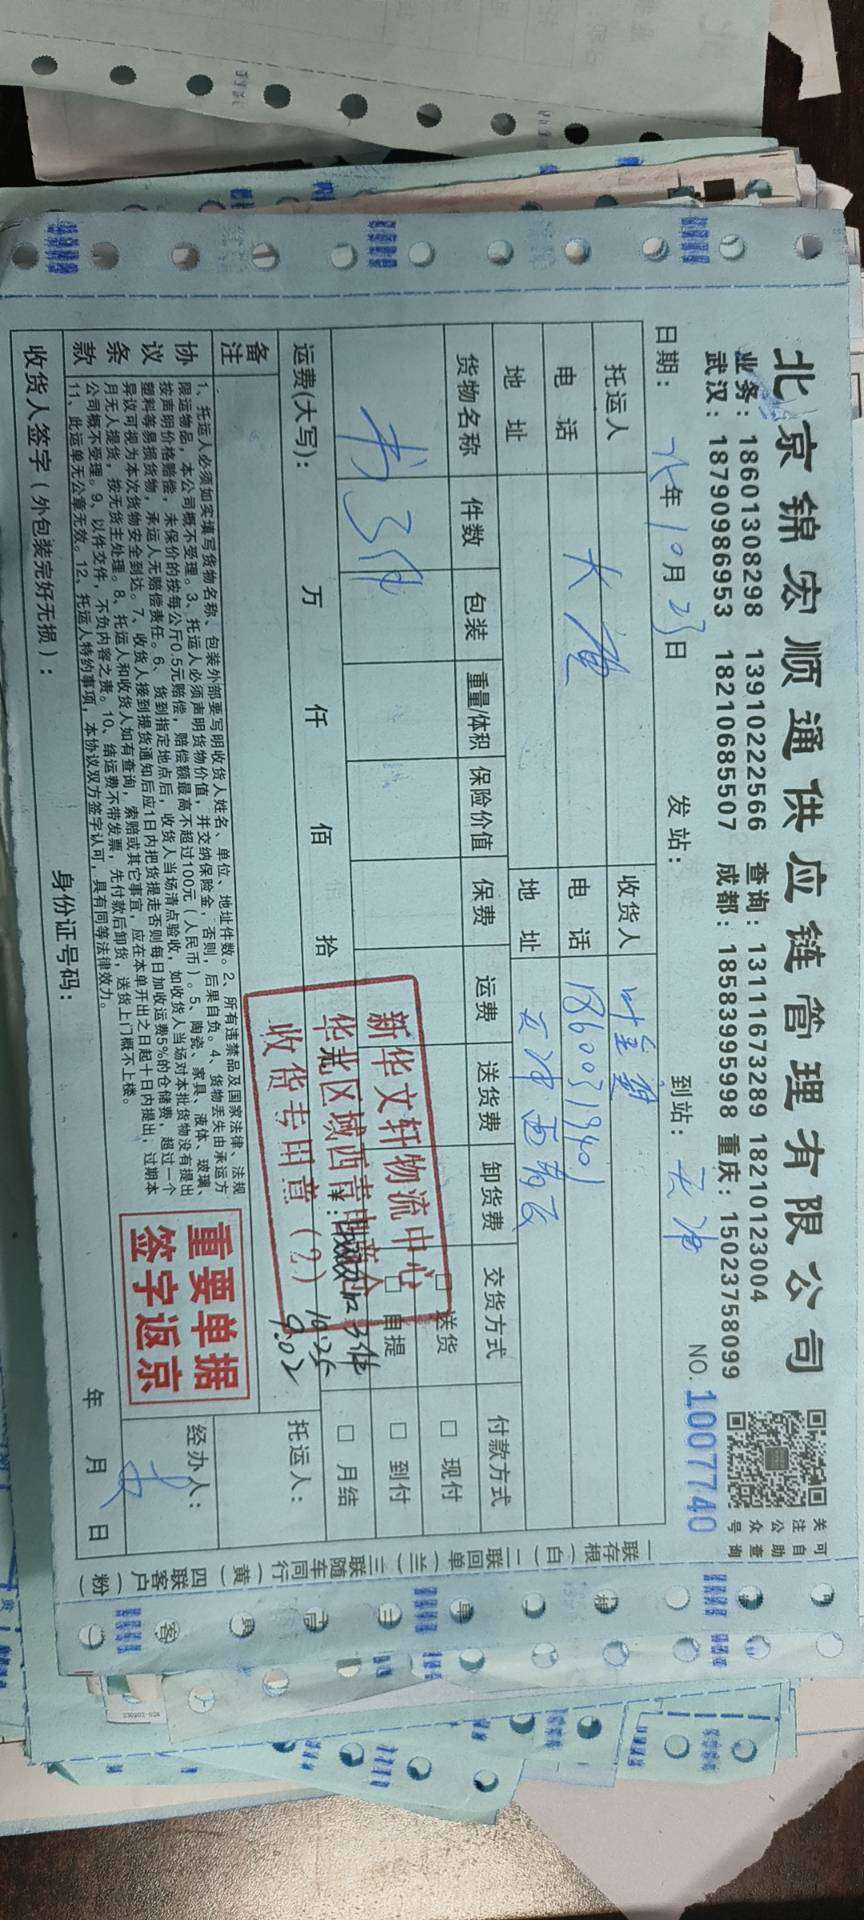 北京锦宏顺通供应链管理有限公司
业务：18601308298 13910222566 查询：13111673289 18210123004
武汉：18790986953 18210685507 成都：18583995998 重庆：15023758099
关注公众号
可自助查询
日期： 年10月23日 发站： 到站：天津 NO.1007740
托运人 收货人
电话 电话 18600371940
地址 地址 天津西青区
货物名称 件数 包装 重量/体积 保险价值 保费 运费 送货费 卸货费 交货方式 付款方式
书 3件
□ 送货 □ 现付
□ 自提 □ 到付
□ 月结
运费(大写)： 万 仟 佰 拾 元 托运人：
新华文轩物流中心
华北区域西青中商仓
收货专用章（2）
3件
10.25
9.02
备注
协议条款
1、托运人必须如实填写货物名称、包装外部要写明收货人姓名、单位、地址件数。2、所有违禁品及国家法律、法规
限运物品，本公司概不受理。3、托运人必须声明货物价值，并交纳保险金，否则，后果自负。4、货物丢失由承运方
按声明价格赔偿，未保价的按每公斤0.5元赔偿，赔偿额最高不超过100元（人民币）。5、陶瓷、家具、液体、玻璃、
塑料等易损货物，承运人无赔偿责任。6、货到指定地点后，收货人当场清点验收，如收货人当场对本批货物没有提出
异议可视为本次货物安全到达。7、收货人接到提货通知后应1日内把货提走否则每日加收运费5%的仓储费，超过一个
月无人提货，按无货主处理。8、托运人和收货人如有查询，索赔或其它事宜，应在本单开出之日起十日内提出，过期本
公司概不受理。9、以件交件，不负内容之责。10、结运费不带发票，先付款后卸货，送货上门概不上楼。
11、此运单无公章无效。12、托运人特约事项，本协议双方签字认可，具有同等法律效力。
重要单据
签字返京
经办人：
收货人签字（外包装完好无损）： 身份证号码： 年 月 日
一联存根（白） 二联回单（兰） 三联随车同行（黄） 四联客户（粉）